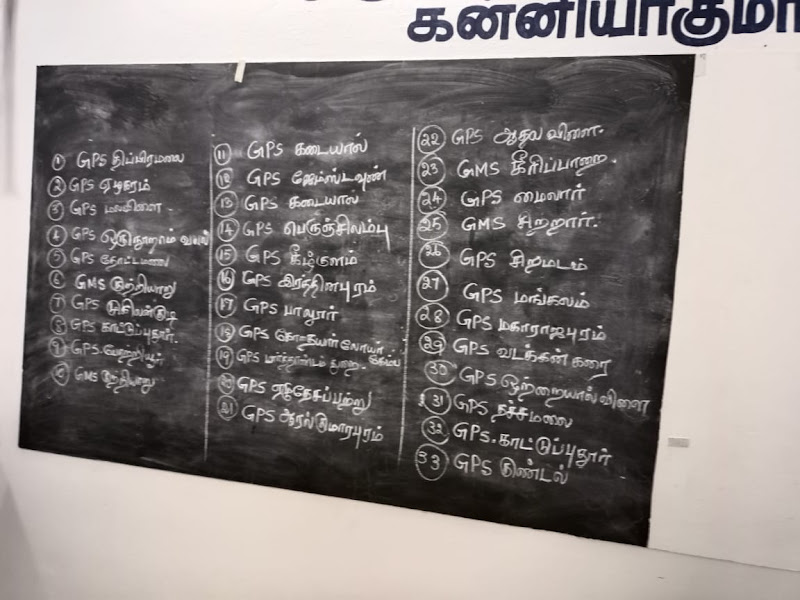 கன்னியாகுமா
① GPS திப்பிரமலை
② GPS ஏழகரம்
③ GPS மலவிளை
④ GPS ஒருநூறாம் வயல்
⑤ GPS தோட்டமலை
⑥ GMS குற்றியாறு
⑦ GPS முசிலன்குடி
⑧ GPS காட்டுப்புதூர்.
⑨ GPS
⑩ GMS குற்றியாறு
⑪ GPS கடையால்
⑫ GPS ஜேம்ஸ்டவுண்
⑬ GPS கடையால்
⑭ GPS பெருஞ்சிலம்பு
⑮ GPS கீழ்குளம்
⑯ GPS இரத்தினபுரம்
⑰ GPS பாலூர்
⑱ GPS கோதையார் லோயர் கேம்ப்
⑲ GPS மார்த்தாண்டம் துறை.
⑳ GPS ஏழுதேசப்பற்று
㉑ GPS ஆரல்குமாரபுரம்
㉒ GPS ஆதவ விளை.
㉓ GMS கீரிப்பாறை.
㉔ GPS மைலார்
㉕ GMS சிற்றார்.
㉖ GPS சிறமடம்
㉗ GPS மங்கலம்
㉘ GPS மகாராஜபுரம்
㉙ GPS வடக்கன் கரை
㉚ GPS ஒற்றையால்விளை
㉛ GPS தச்சமலை
㉜ GPS. காட்டுப்புதூர்
㉝ GPS குண்டல்